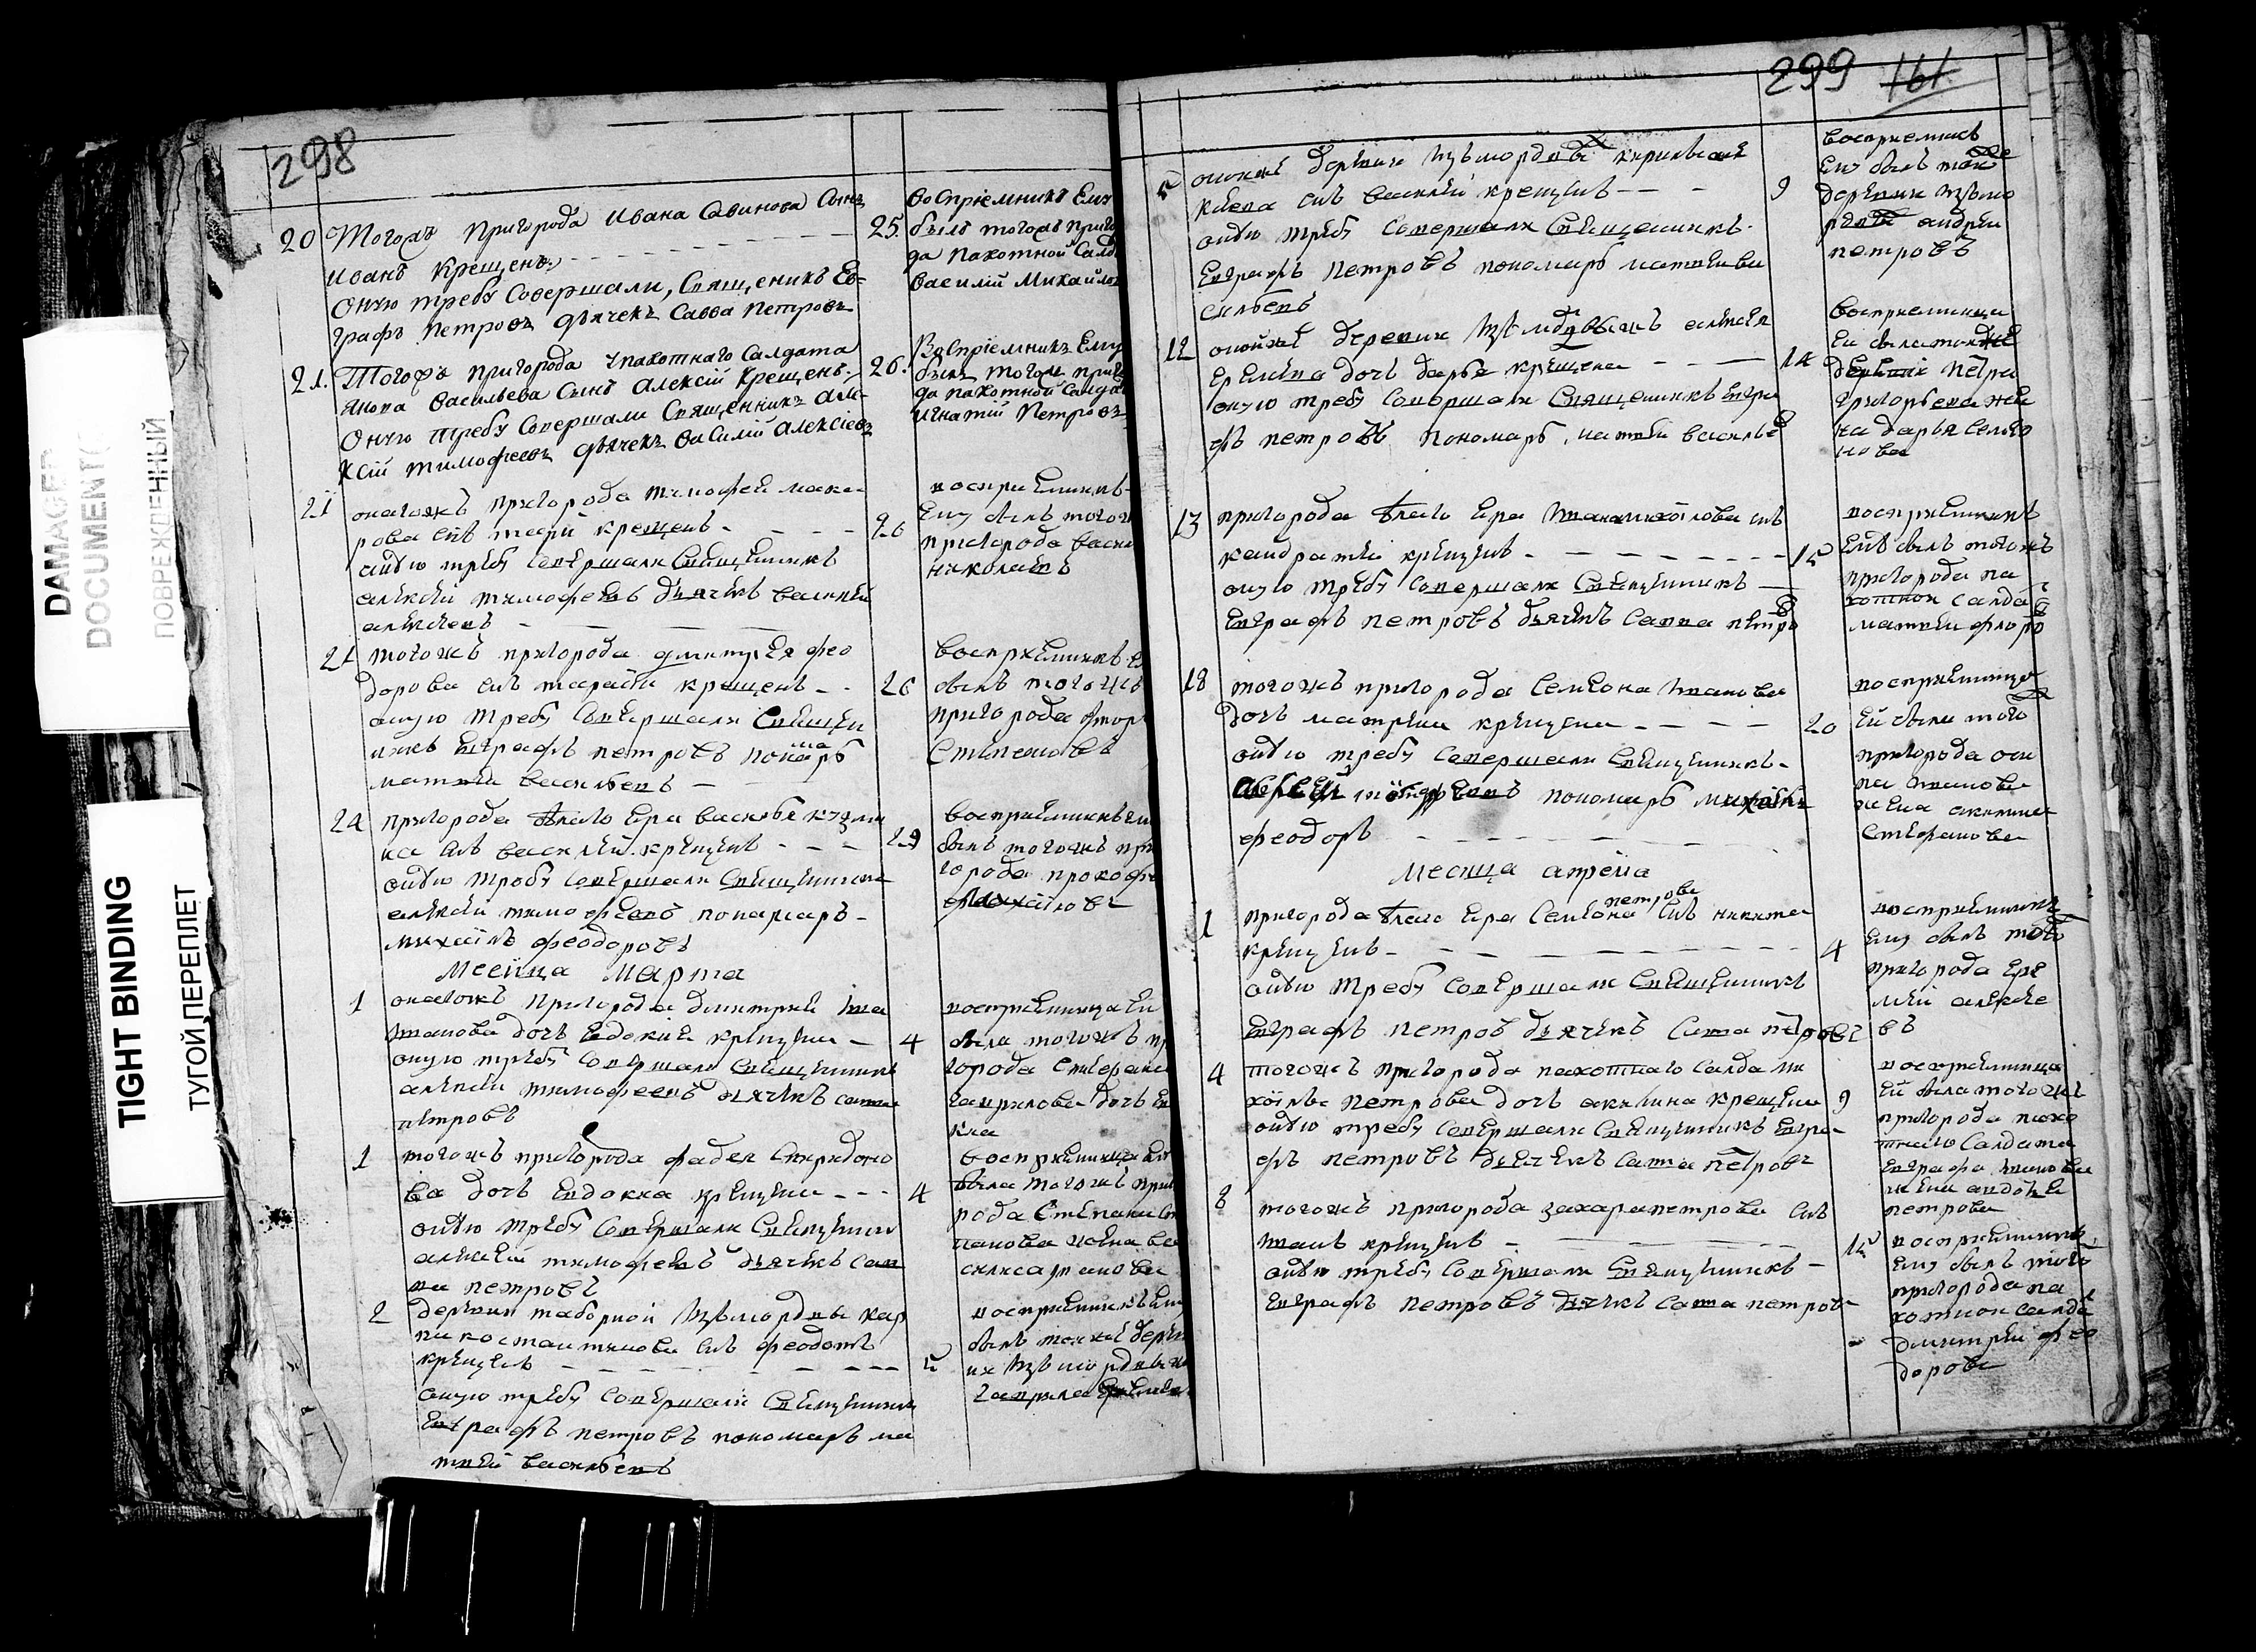 298
20 Тогожъ пригорода Ивана Савинова Сынъ
Иванъ Крещенъ.
Оную требу Совершали, Священикъ Ев-
графъ Петровъ дьячекъ Савва Петровъ
25. воспріемникъ Ему
былъ тогожъ приго
да пахотной Салд
Василий Михайлов
21. Тогожъ пригорода пахотнаго Салдата
Васильева Сынъ Алексій Крещенъ.
Оную требу Совершали Священникъ Але-
ксій тимофеевъ дьячекъ Василій Алексіевъ
26. Воспріемникъ Ему
былъ тогожъ приго
да пахотной Салдат
Игнатій Петровъ
21 онагожъ пригорода тимофея мака-
рова снъ крещенъ
оную требу Совершали Священникъ
алексей тимофеевъ дьячекъ василей
алексеевъ
26 восприемникъ
Ему былъ тогожъ
пригорода васил
николаевъ
21 тогожъ пригорода дмитрея фео
дорова снъ тарасей крещенъ
оную требу Совершали Священ
никъ Евграфъ петровъ понамарь
матвей васильевъ
26 восприемникъ
былъ тогожъ
пригорода
Степановъ
24 пригорода василья кузми
на снъ василей крещенъ
оную требу Совершали Священникъ
алексей тимофеевъ понамарь
михаилъ феодоровъ
29 восприемникъ
былъ тогожъ при
города прокофе
месяца марта
1 онагожъ пригорода дмитрия
дочь Евдокия крещена
оную требу Совершали Священникъ
алексей тимофеевъ дьячекъ савва
петровъ
4 восприемница Ей
была тогожъ пр
города Стефана
гаврилова дочь
кла
1 тогожъ пригорода фадея Спиридоно
ва дочь Евдокия крещена
оную требу Совершали Священникъ
алексей тимофеевъ дьячекъ сав
ва петровъ
4 восприемница
была тогожъ приг
рода Степана
панова жена ва
силиса иванова
2 деревни таборной измордвы кар
па костантинова снъ феодотъ
крещенъ
оную требу Совершали Священникъ
Евграфъ петровъ пономарь ма
твей васильевъ
5 восприемникъ
былъ тоежъ дерев
ни измордвы
гаврила
299 161
5 оноижъ деревни измордвы
снъ василей крещенъ
оную требу Совершали Священникъ
Евграфъ петровъ пономарь матвей ва
сильевъ
9 восприемникъ
Ему былъ тоеже
деревни измо
рдвы андрей
петровъ
12 оноижъ деревни алексея
дочь дарья крещена
оную требу Совершали Священникъ Евгра
фъ петровъ пономарь матвей васильев
14 восприемница
Ей была тоежде
деревни петра
григорьева же
на дарья семио
нова
13 пригорода ивана михайлова снъ
кандратей крещенъ
оную требу Совершали Священникъ
Евграфъ петровъ дьячекъ савва петро
15 восприемникъ
Ему былъ тогожъ
пригорода па
хотнои салда
матвеи флоро
18 тогожъ пригорода семиона иванова
дочь матрена крещена
оную требу Совершали Священникъ
пономарь михаилъ
феодоръ
20 восприемница
Ей была того
пригорода оси
па иванова
жена акилина
Стефанова
месяца апреля
1 пригорода Семиона петрова снъ никита
крещенъ
оную требу Совершали Священникъ
Евграфъ петров дьячекъ Савва петровъ
4 восприемникъ
Ему былъ того
пригорода Ере
мей алексее
въ
4 тогожъ пригорода пахотнаго салда ми
хайла петрова дочь акилина крещена
оную требу Совершали Священникъ Евгра
фъ петровъ дьячекъ Савва петровъ
9 восприемница
Ей была тогожъ
пригорода пахо
тнаго Салдата
Евграфа иванова
жена авдотья
петрова
8 тогожъ пригорода захара петрова снъ
иванъ крещенъ
оную требу Совершали Священникъ
Евграфъ петровъ дьячекъ Савва петровъ
15 восприемникъ
Ему былъ того
пригорода па
хотнои салда
дмитрей фео
доровъ
DAMAGED
DOCUMENT(
ПОВРЕЖДЕННЫЙ
TIGHT BINDING
ТУГОЙ ПЕРЕПЛЕТ